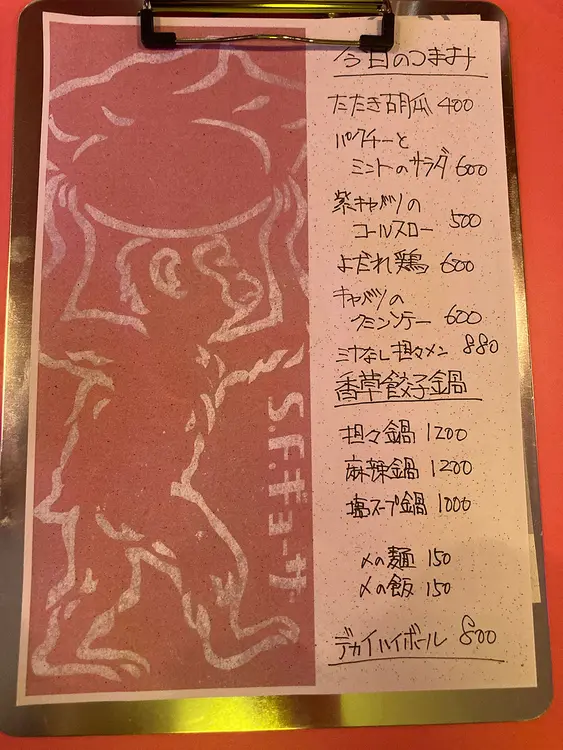 今日のつまみ
たたき胡瓜 400
パクチーと
ミントのサラダ 600
紫キャベツの
コールスロー 500
よだれ鶏 600
キャベツの
クミンソテー 600
汁なし担々メン 880
香草餃子鍋
担々鍋 1200
麻辣鍋 1200
塩スープ鍋 1000
〆の麺 150
〆の飯 150
デカイハイボール 800
S.F.ギョーザ